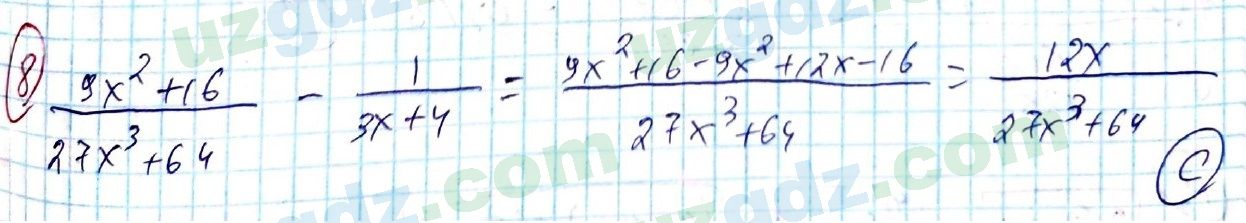 8 (9x² + 16)/(27x³ + 64) - 1/(3x + 4) = (9x² + 16 - 9x² + 12x - 16)/(27x³ + 64) = 12x/(27x³ + 64)
C
uzgdz.com